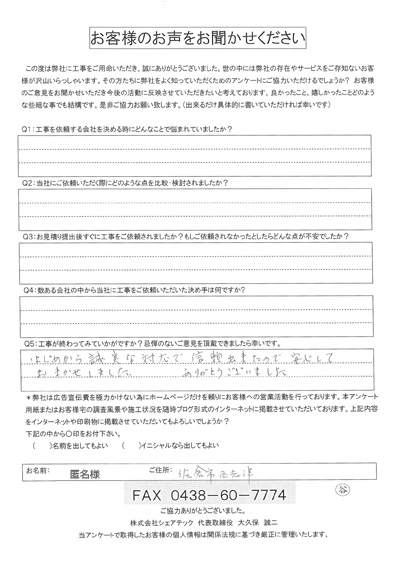 お客様のお声をお聞かせください
この度は弊社に工事をご用命いただき、誠にありがとうございました。世の中には弊社の存在やサービスをご存知ないお客
様が沢山いらっしゃいます。その方たちに弊社をよく知っていただくためのアンケートにご協力いただけるでしょうか? お客様
のご意見をお聞かせいただき今後の活動に反映させていただきたいと考えております。良かったこと、嬉しかったことどのよう
な些細な事でも結構です。是非ご協力お願い致します。(出来るだけ具体的に書いていただければ幸いです)
Q1:工事を依頼する会社を決める時にどんなことで悩まれていましたか?
Q2:当社にご依頼いただく際にどのような点を比較・検討されましたか?
Q3:お見積り提出後すぐに工事をご依頼されましたか?もしご依頼されなかったとしたらどんな点が不安でしたか?
Q4:数ある会社の中から当社に工事をご依頼いただいた決め手は何ですか?
Q5:工事が終わってみていかがですか?忌憚のないご意見を頂戴できましたら幸いです。
はじめから誠実な対応で信頼出来たので安心して
おまかせしました ありがとうございました
*弊社は広告宣伝費を極力かけない為にホームページだけを頼りにお客様への営業活動を行っております。本アンケート
用紙またはお客様宅の調査風景や施工状況を随時ブログ形式のインターネットに掲載させていただいております。上記内容
をインターネットや印刷物に掲載させていただいてもよろしいでしょうか?
下記の中から〇印をお付下さい。
( )名前を出してもよい ( )イニシャルなら出してもよい
お名前: 匿名様 ご住所: 佐倉市西志津
FAX 0438-60-7774
ご協力ありがとうございました。
株式会社シェアテック 代表取締役 大久保 誠二
当アンケートで取得したお客様の個人情報は関係法規に基づき厳正に管理いたします。